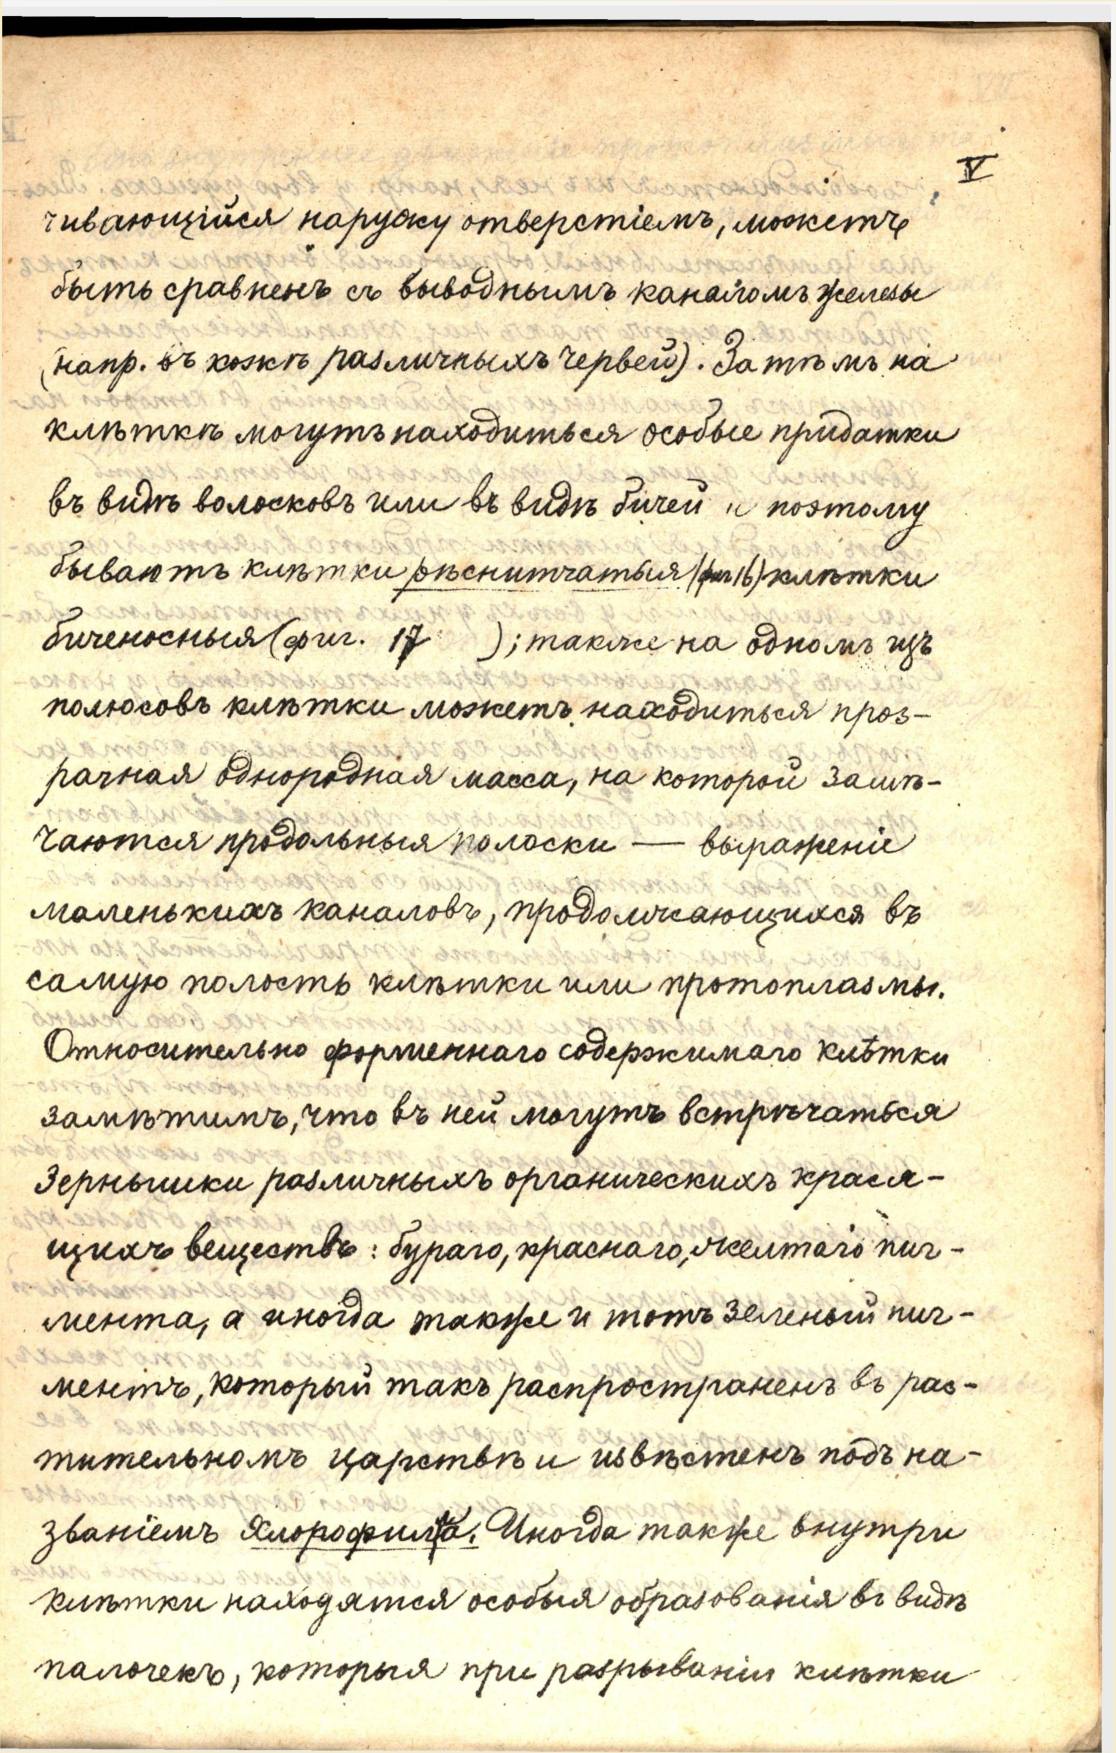 V
чивающійся наружу отверстіемъ, можетъ
быть сравненъ съ выводнымъ каналомъ железы
(напр. въ кожѣ различныхъ червей). Затѣмъ на
клѣткѣ могутъ находиться особые придатки
въ видѣ волосковъ или въ видѣ бичей и поэтому
бываютъ клѣтки рѣснитчатыя (фиг 16) клѣтки
биченосныя (фиг. 17 ); также на одномъ изъ
полюсовъ клѣтки можетъ находиться проз-
рачная однородная масса, на которой замѣ-
чаются продольныя полоски — выраженіе
маленькихъ каналовъ, продолжающихся въ
самую полость клѣтки или протоплазмы.
Относительно форменнаго содержимаго клѣтки
замѣтимъ, что въ ней могутъ встрѣчаться
зернышки различныхъ органическихъ крася-
щихъ веществъ: бураго, краснаго, желтаго пиг-
мента, а иногда также и тотъ зеленый пиг-
ментъ, который такъ распространенъ въ рас-
тительномъ царствѣ и извѣстенъ подъ на-
званіемъ хлорофила. Иногда также внутри
клѣтки находятся особыя образованія въ видѣ
палочекъ, которыя при разрываніи клѣтки